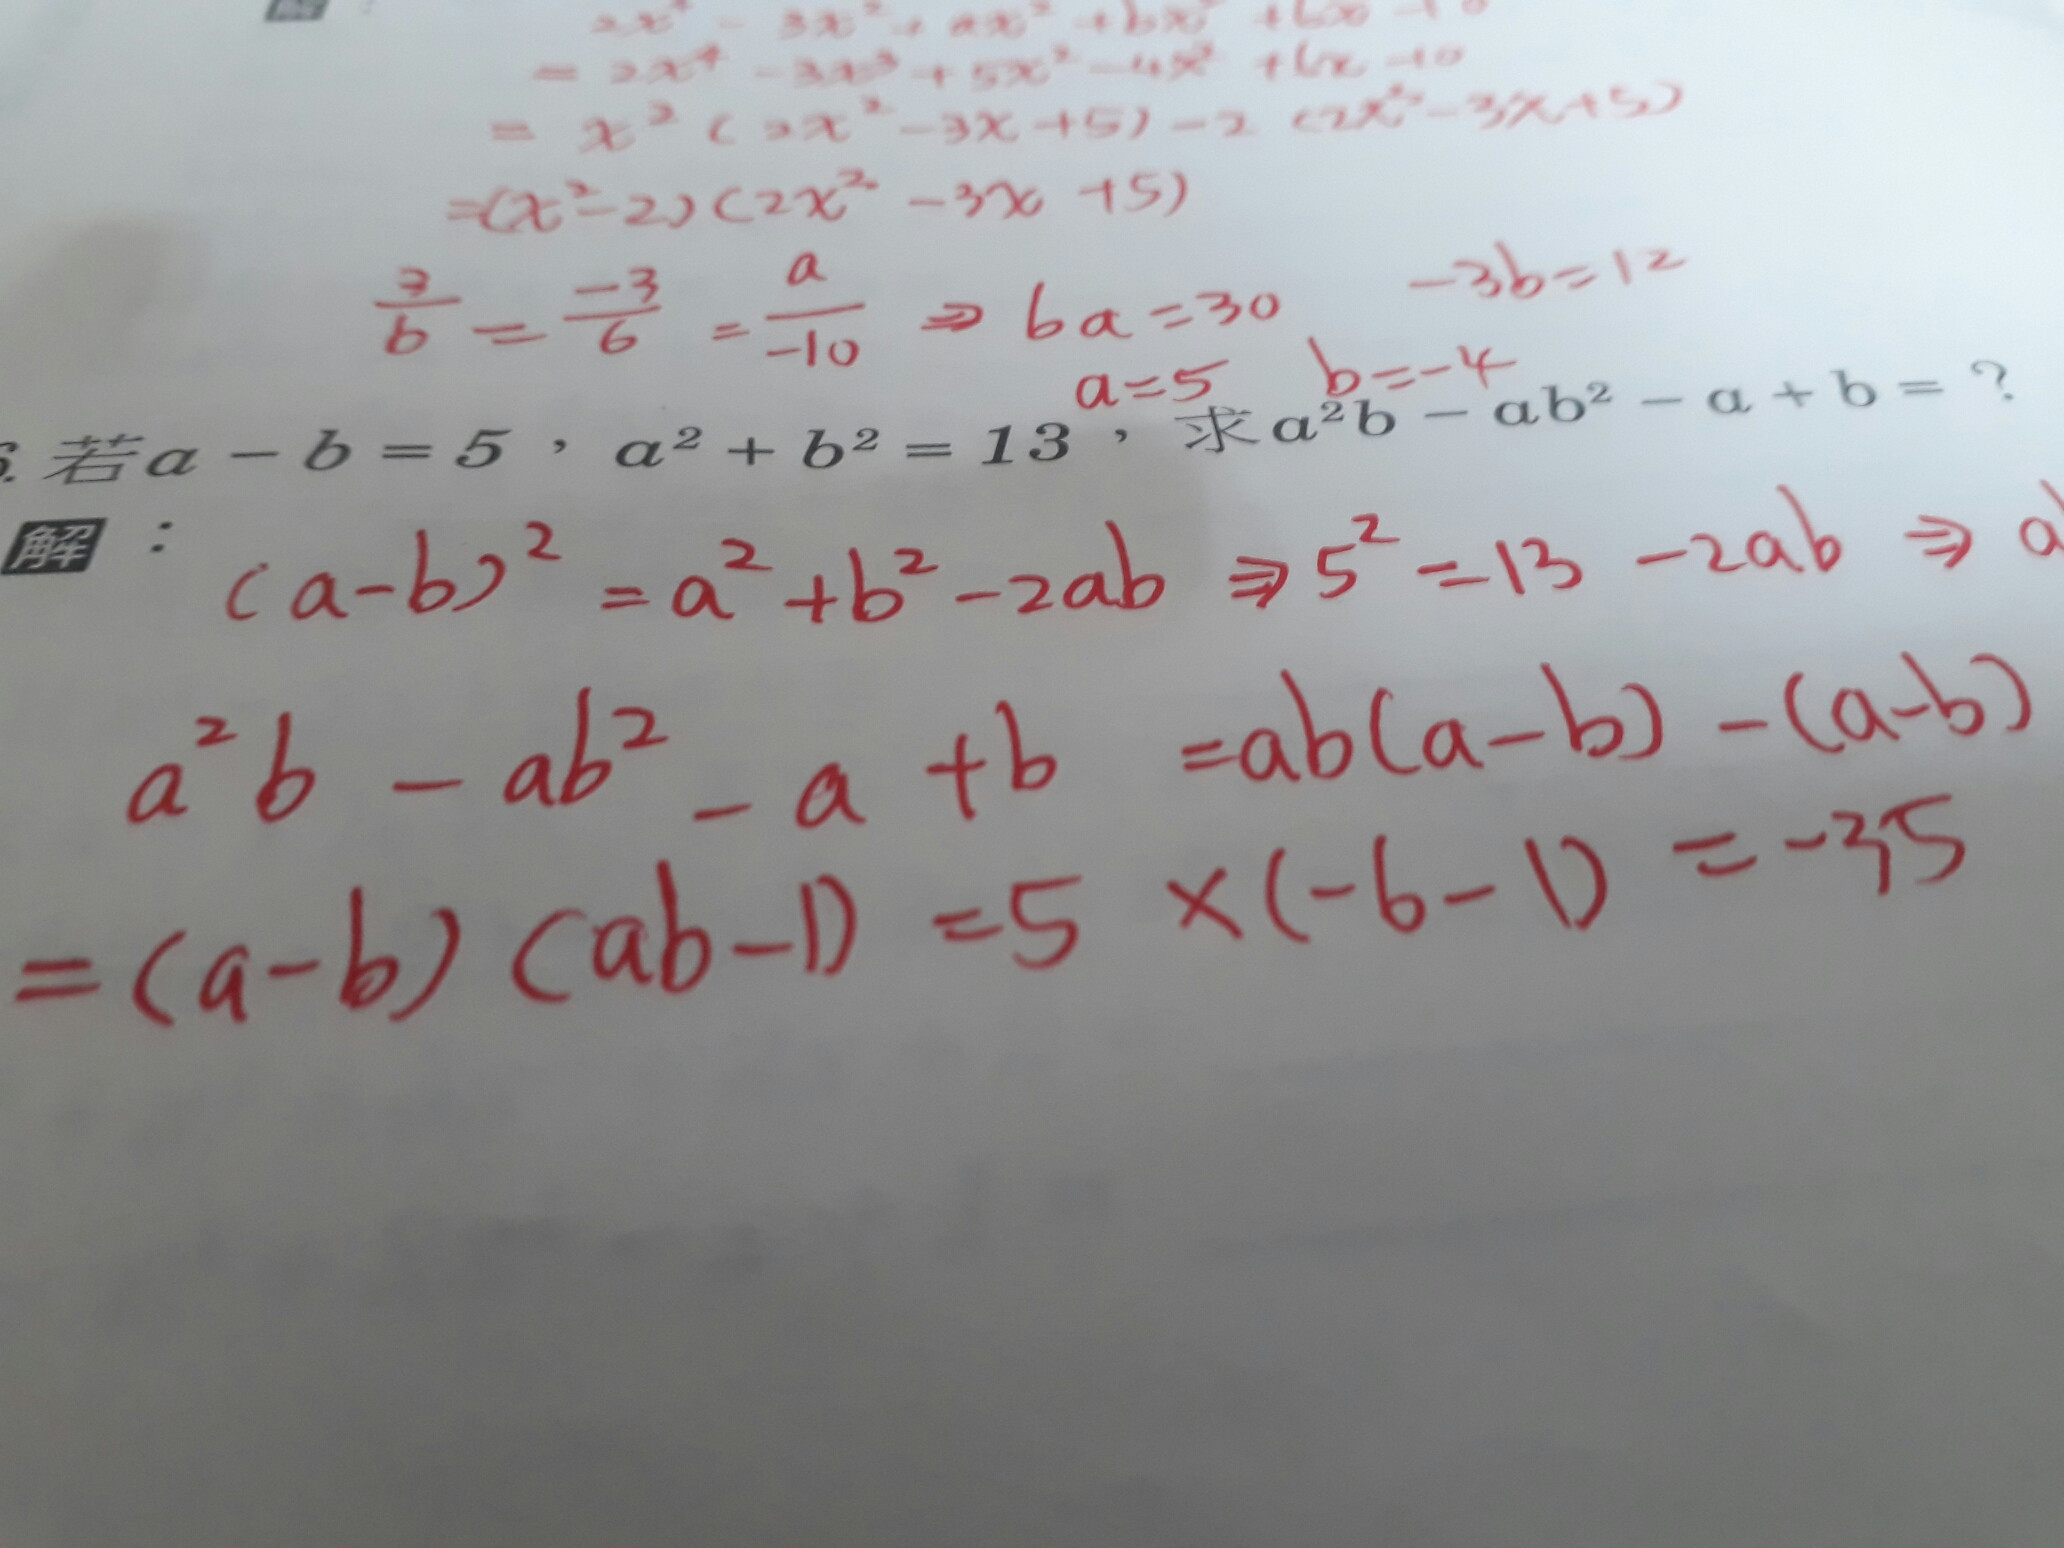 解:
2x⁴ - 3x³ + ax² + bx² + 6x - 10
= 2x⁴ - 3x³ + 5x² - 4x² + 6x - 10
= x² (2x² - 3x + 5) - 2 (2x² - 3x + 5)
= (x² - 2) (2x² - 3x + 5)
2/b = -3/6 = a/-10 ⇒ 6a = 30 -3b = 12
a = 5 b = -4
6. 若a - b = 5,a² + b² = 13,求a²b - ab² - a + b = ?
解:
(a-b)² = a² + b² - 2ab ⇒ 5² = 13 - 2ab ⇒ a
a²b - ab² - a + b = ab(a-b) - (a-b)
= (a-b) (ab-1) = 5 × (-6-1) = -35